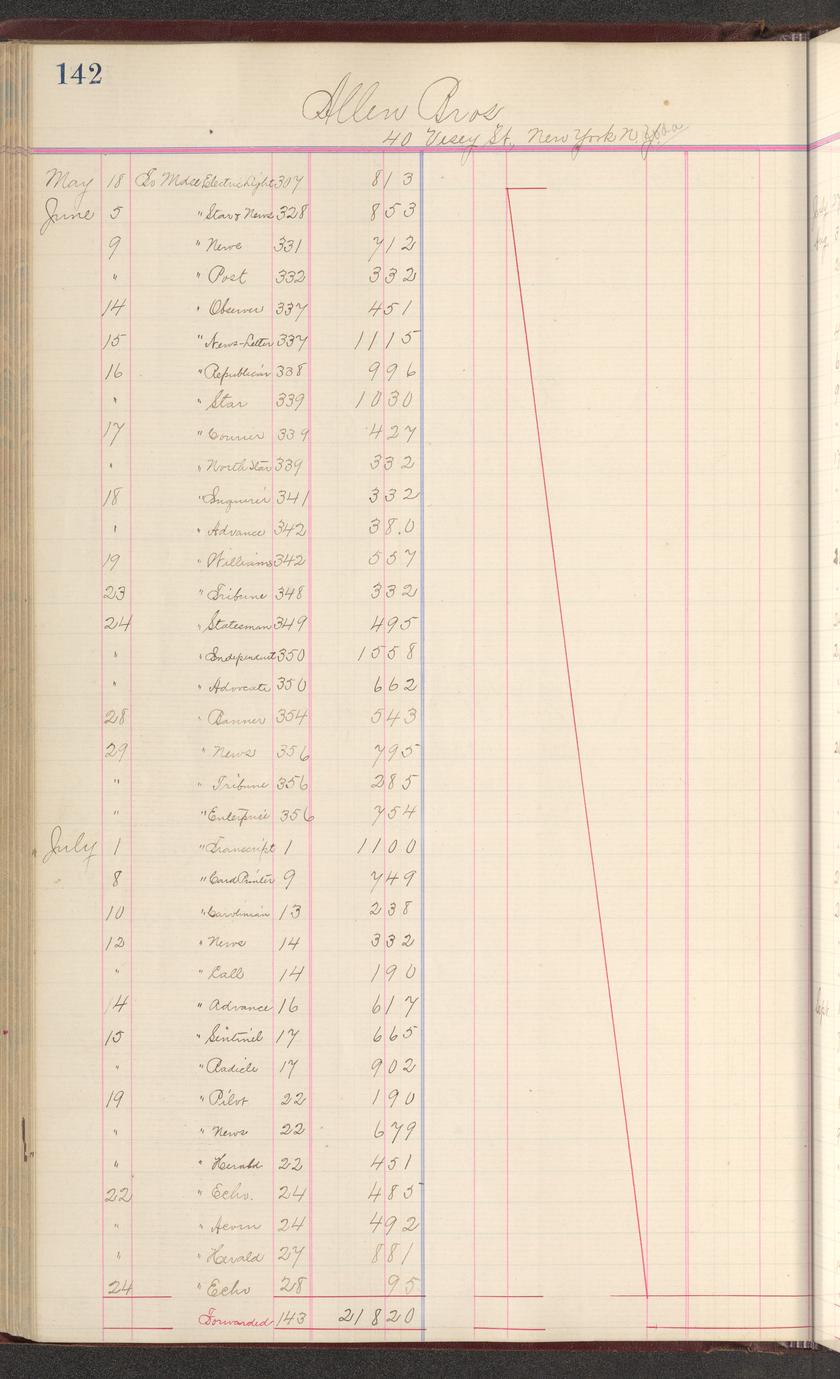 142
Allen Bros
40 Vesey St, New York N.Y.
May 18 To Mdse Electric Light 307 813
June 5 " Star & News 328 853
9 " News 331 712
" " Post 332 332
14 " Observer 337 451
15 " News-Letter 337 1115
16 " Republican 338 996
" " Star 339 1030
17 " Courier 339 427
" " North Star 339 332
18 " Enquirer 341 332
" " Advance 342 38.0
19 " Williams 342 557
23 " Tribune 348 332
24 " Statesman 349 495
" " Independent 350 1558
" " Advocate 350 662
28 " Banner 354 543
29 " News 356 795
" " Tribune 356 285
" " Enterprise 356 754
July 1 " Transcript 1 1100
8 " Card Printer 9 749
10 " Carolinian 13 238
12 " News 14 332
" " Call 14 190
14 " Advance 16 617
15 " Sentinel 17 665
" " Radicle 17 902
19 " Pilot 22 190
" " News 22 679
" " Herald 22 451
22 " Echo. 24 485
" " 24 492
" " Herald 27 881
24 " Echo 28 95
Forwarded 143 21820